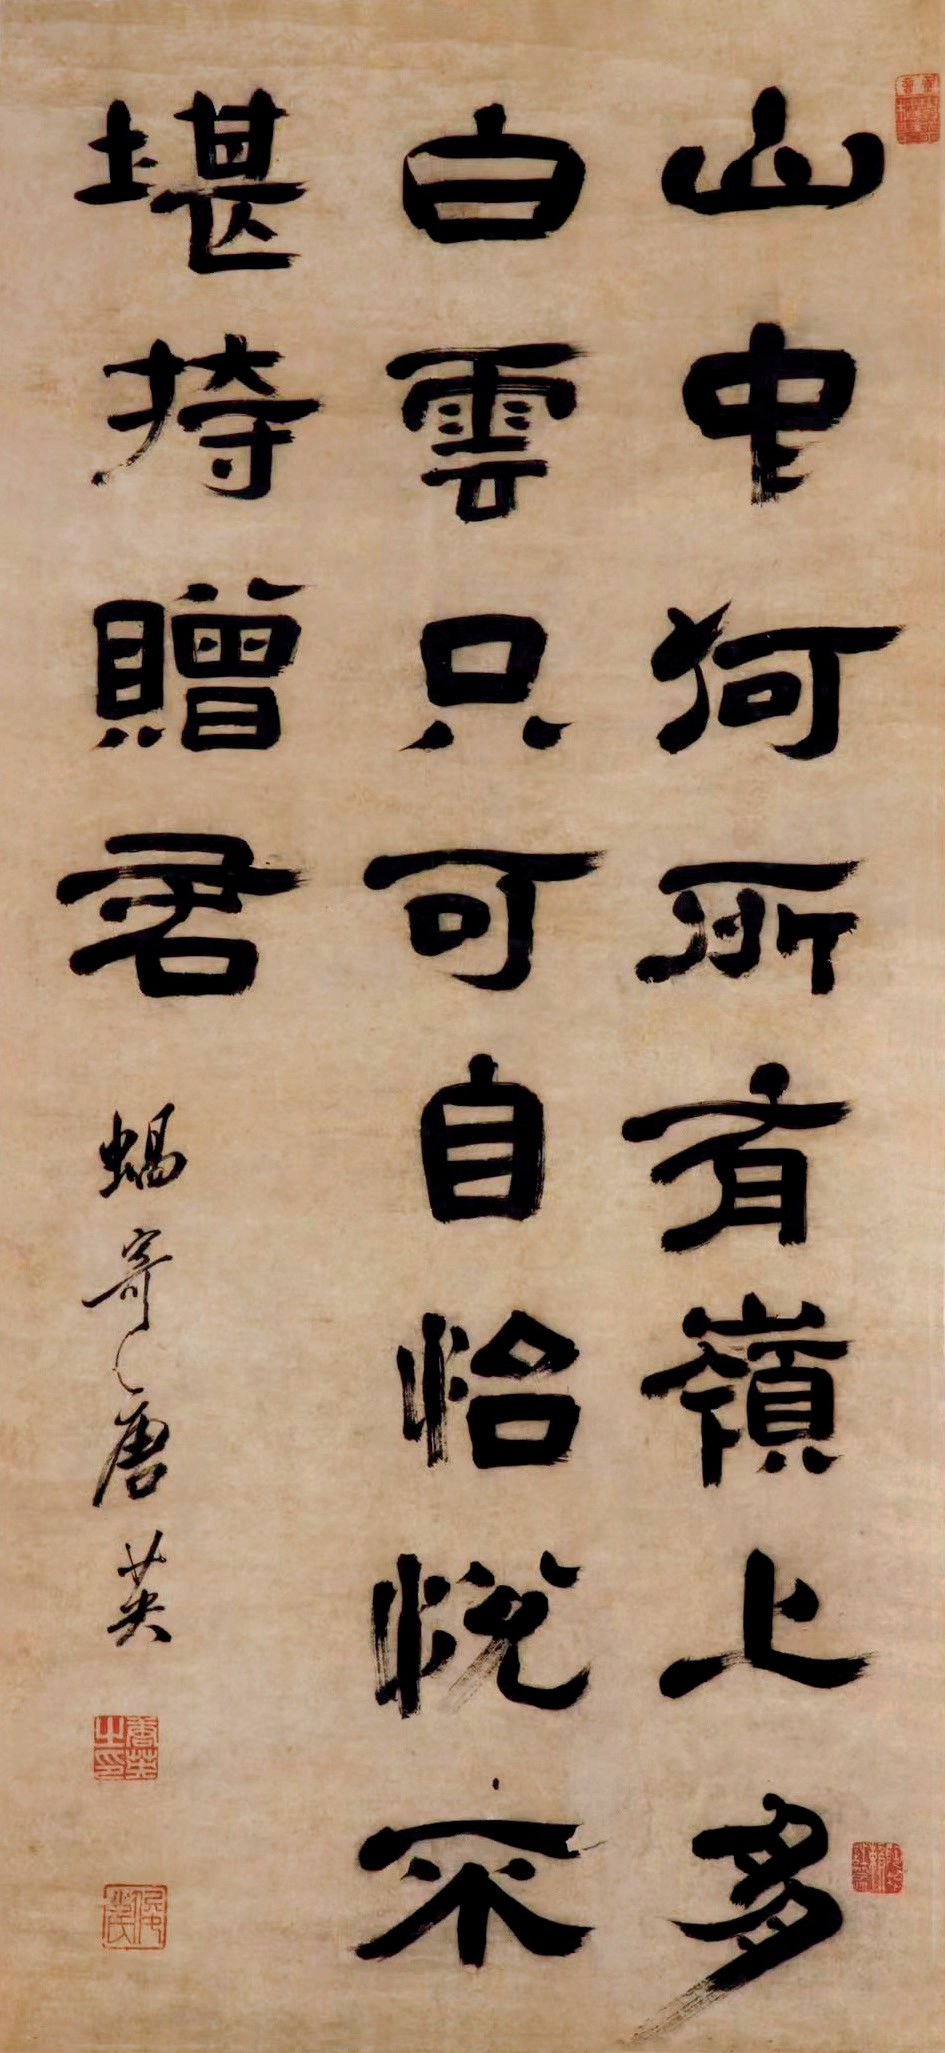 山中何所有嶺上多
白雲只可自怡悅不
堪持贈君
蝸寄唐英
唐英之印